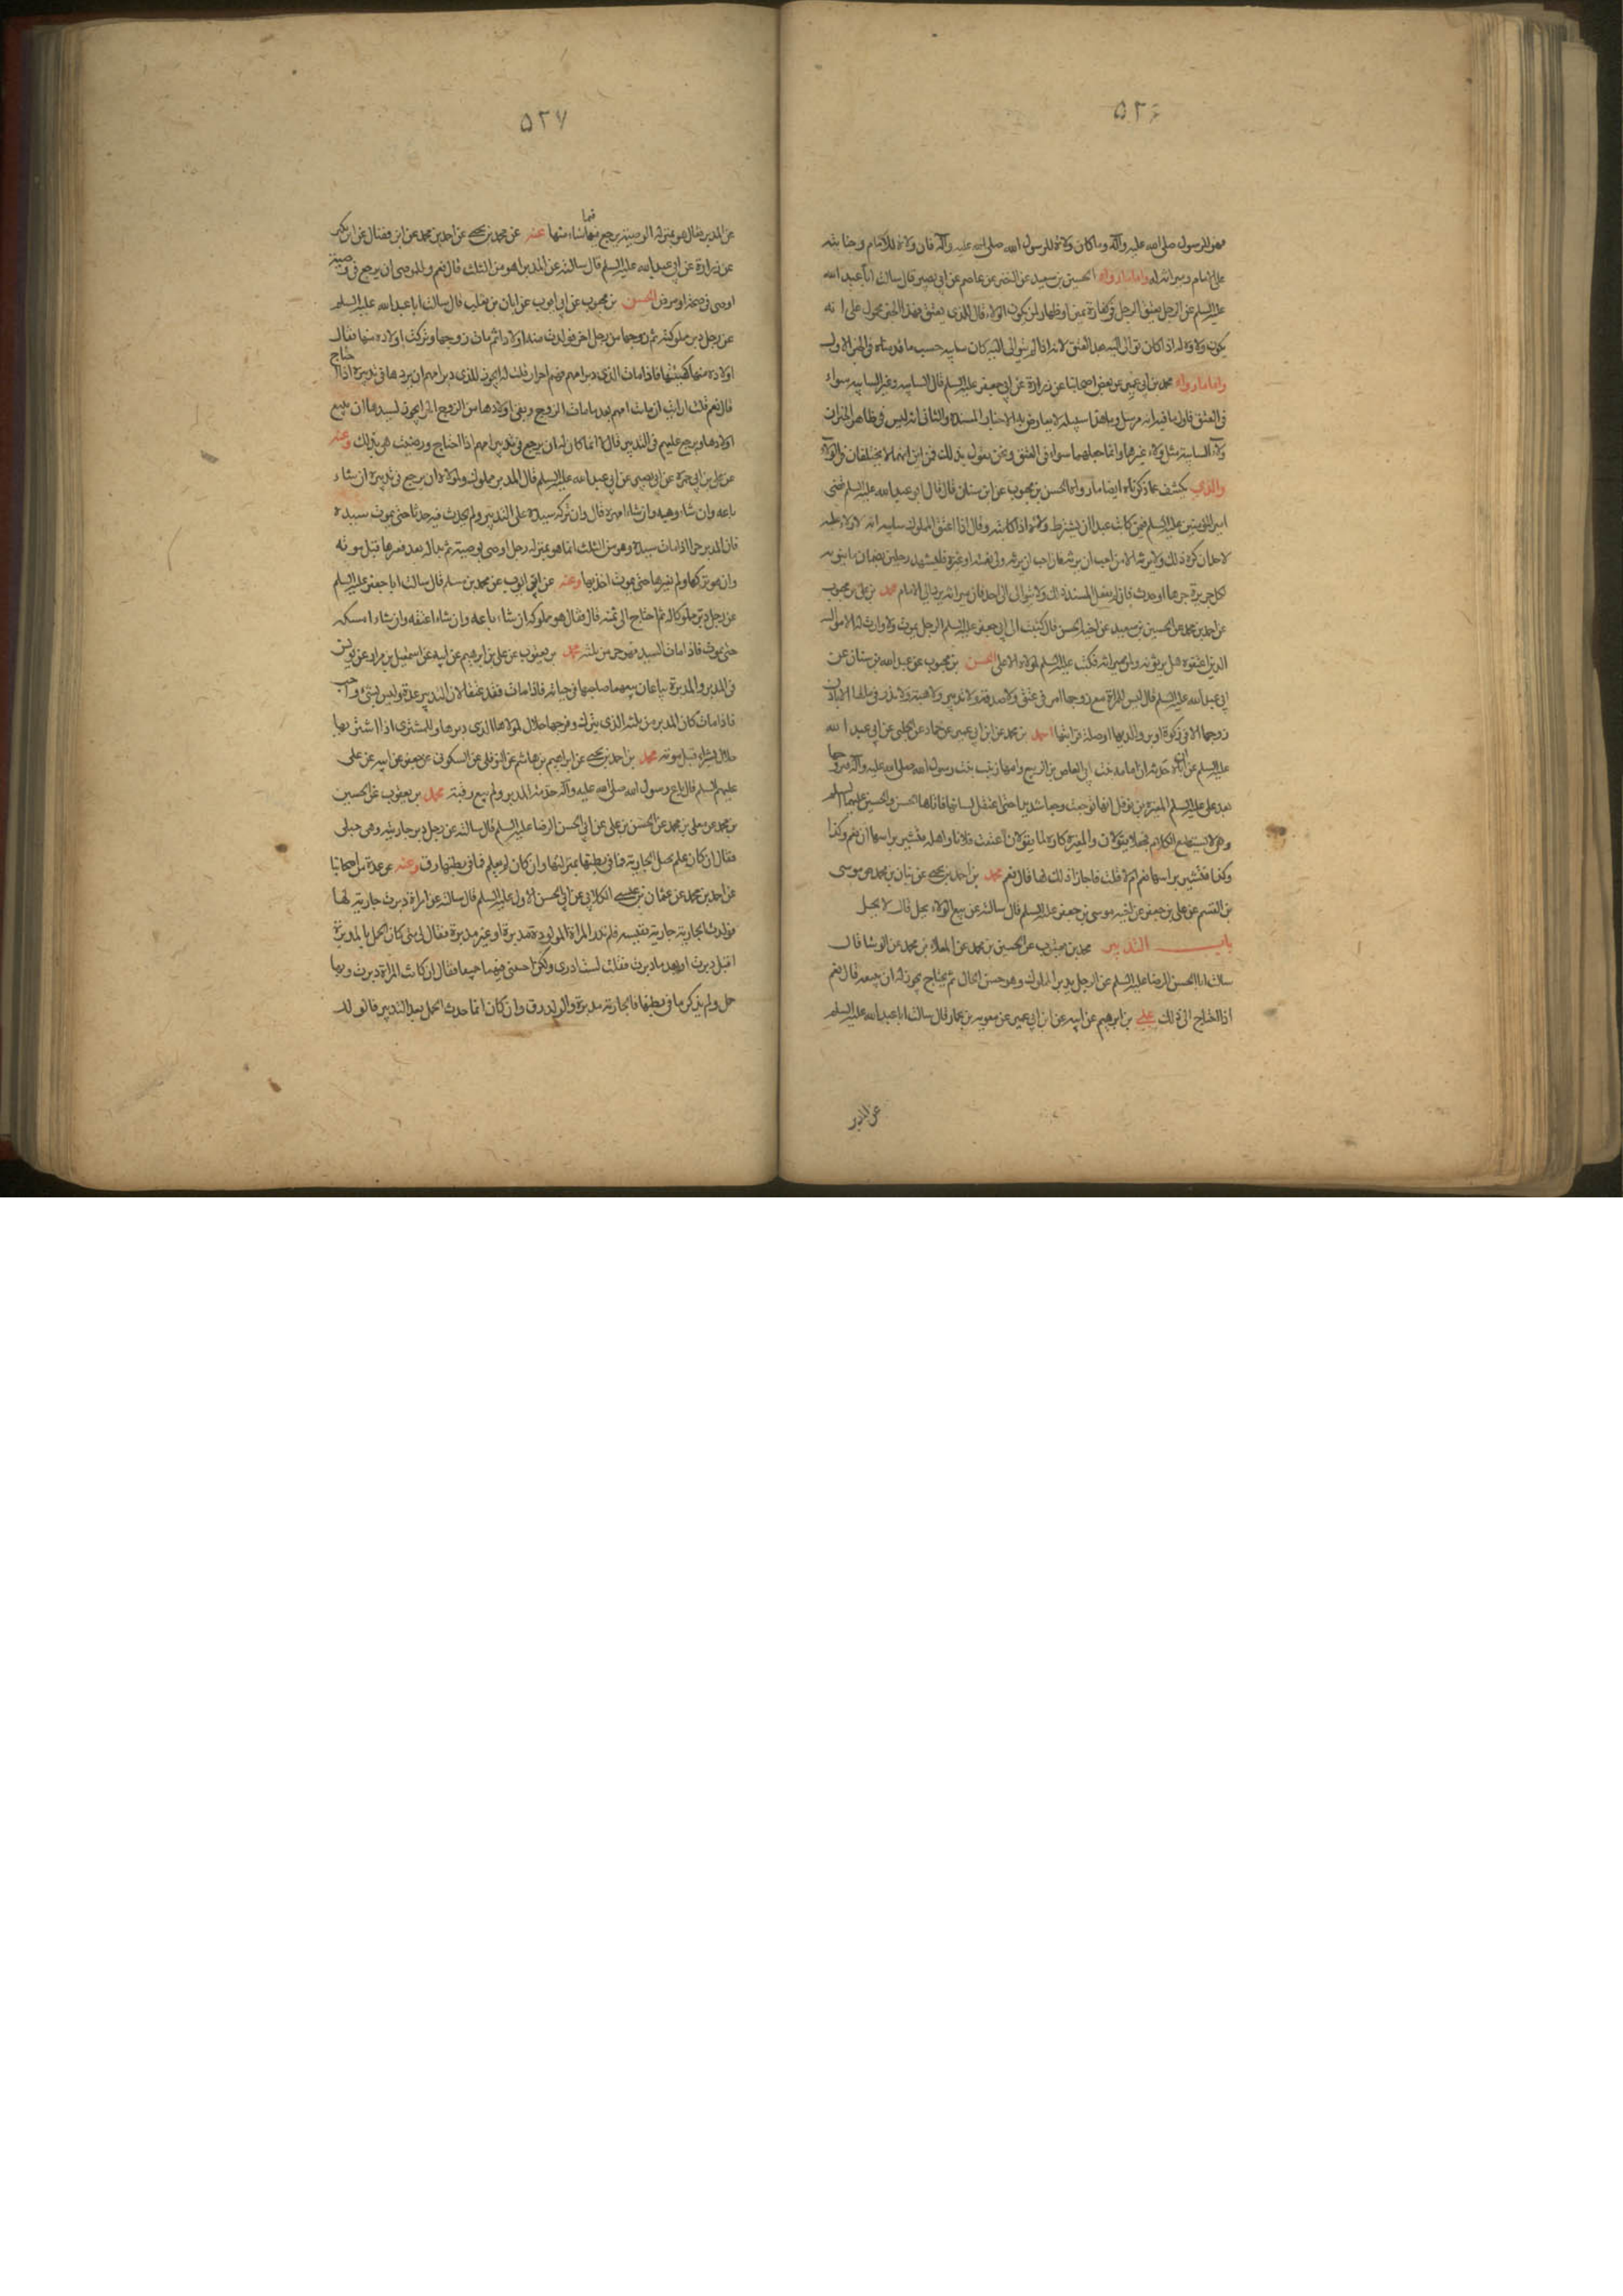 ٥٢٦
فهو للرسول صلى الله عليه وآله وما كان ولاؤه للرسول الله صلى الله عليه وآله فان ولاؤه للامام وجنايته
على الامام وميراثه له واما ما رواه الحسين بن سعيد عن النضر عن عاصم عن ابى بصير قال سالت ابا عبد الله
عليه السلم عن الرجل يعتق الرجل فى كفارة يمين او ظهار لمن يكون الولاء قال للذى يعتق فهذا الخبر محمول على انه
يكون ولاؤه له اذا كان توالى اليه بعد العتق لانه اذا لم يتوالى اليه كان سايبه حسب ما قدمناه فى الخبر الاول
واما ما رواه محمد بن ابى عمير عن بعض اصحابنا عن زرارة عن ابى جعفر عليه السلم قال السايبه وغير السايبه سواء
فى العتق فاول ما فيه انه مرسل وما هذا سبيله لا يعارض به الاخبار المسنده والثانى انه ليس فى ظاهر الخبر ان
ولاء السايبة مثل ولاء غيرها وانما جعلهما سواء فى العتق ونحن نقول بذلك فمن اين انهما لا يختلفان فى الولاء
والذى يكشف عما ذكرناه ايضا ما رواه الحسن بن محبوب عن ابن سنان قال قال ابو عبد الله عليه السلم قضى
امير المؤمنين عليه السلم فيمن كاتب عبدا ان يشترط ولاءه اذا كاتبه وقال اذا اعتق المملوك سايبه انه لا ولاء عليه
لاحد ان كره ذلك ولا يرثه الا من احب ان يرثه فان احب ان يرثه ولى نعمته او غيره فليشهد رجلين بضمان ما ينوبه
لكل جريرة جرها او حدث فان لم يفعل السيد ذلك ولا يتوالى الى احد فان ميراثه يرد الى الامام محمد بن على بن محبوب
عن احمد بن محمد عن الحسين بن سعيد عن اخيه الحسن قال كتبت الى ابى جعفر عليه السلم الرجل يموت ولا وارث له الا مواليه
الذين اعتقوه هل يرثونه ولمن ميراثه فكتب عليه السلم لمولاه الاعلى الحسن بن محبوب عن عبد الله بن سنان عن
ابى عبد الله عليه السلم قال ليس للمراة مع زوجها امر فى عتق ولا صدقة ولا تدبير ولا هبة ولا نذر فى مالها الا باذن
زوجها الا فى زكوة او بر والديها او صلة قرابتها احمد بن محمد عن ابن ابى عمير عن حماد عن الحلبى عن ابى عبد الله
عليه السلم عن ابيه حدثه ان امامه بنت ابى العاص بن الربيع وامها زينب بنت رسول الله صلى الله عليه وآله تزوجها
بعد على عليه السلم المغيرة بن نوفل انها توجعت وجعا شديدا حتى اعتقل لسانها فاتاها الحسن والحسين عليهما السلم
وهى لا تستطيع الكلام فجعلا يقولان والمغيرة كاره لما يقولان اعتقت فلانا واهله فتشير براسها ان نعم وكذا
وكذا فتشير براسها نعم ام لا قلت فاجازا ذلك لها قال نعم محمد بن احمد بن يحيى عن بنان بن محمد عن موسى
بن القسم عن على بن جعفر عن اخيه موسى بن جعفر عليه السلم قال سالته عن بيع الولاء يحل قال لا يحل
باب التدبير محمد بن يعقوب عن الحسين بن محمد عن المعلى بن محمد عن الوشا قال
سالت ابا الحسن الرضا عليه السلم عن الرجل يدبر المملوك وهو حسن الحال ثم يحتاج يجوز له ان يبيعه قال نعم
اذا احتاج الى ذلك على بن ابرهيم عن ابيه عن ابن ابى عمير عن معويه بن عمار قال سالت ابا عبد الله عليه السلم
عن المدبر
٥٢٧
عن المدبر فقال هو بمنزلة الوصية يرجع فيما شاء منها عنه عن محمد بن يحيى عن احمد بن محمد عن ابن فضال عن ابن بكير
عن زرارة عن ابى عبد الله عليه السلم قال سالته عن المدبر اهو من الثلث قال نعم وللموصى ان يرجع فى وصيته
اوصى فى صحة او مرض الحسن بن محبوب عن ابى ايوب عن ابان بن تغلب قال سالت ابا عبد الله عليه السلم
عن رجل دبر مملوكته ثم زوجها من رجل اخر فولدت منه اولادا ثم مات زوجها وتركت اولاده منها فقال
اولاده منها كهيئتها فاذا مات الذى دبر امهم فهم احرار قلت له ايجوز للذى دبر امهم ان يردها فى تدبيره اذا احتاج
قال نعم قلت ارايت ان ماتت امهم بعد ما مات الزوج وبقى اولادها من الزوج الحر ايجوز لسيدها ان يبيع
اولادها ويرجع عليهم فى التدبير قال لا انما كان له ان يرجع فى تدبير امهم اذا احتاج ورضيت هى بذلك وعنه
عن على بن ابى حمزة عن ابى بصير عن ابى عبد الله عليه السلم قال المدبر مملوك ولمولاه ان يرجع فى تدبيره ان شاء
باعه وان شاء وهبه وان شاء امهره قال وان تركه سيده على التدبير ولم يحدث فيه حدثا حتى يموت سيده
فان المدبر حر اذا مات سيده وهو من الثلث انما هو بمنزلة رجل اوصى بوصية ثم بدا له بعد فغيرها قبل موته
وان هو تركها ولم يغيرها حتى يموت اخذ بها وعنه عن ابى ايوب عن محمد بن مسلم قال سالت ابا جعفر عليه السلم
عن رجل دبر مملوكا له ثم احتاج الى ثمنه قال فقال هو مملوكه ان شاء باعه وان شاء اعتقه وان شاء امسكه
حتى يموت فاذا مات السيد فهو حر من ثلثه محمد بن يعقوب عن على بن ابرهيم عن ابيه عن اسمعيل بن مرار عن يونس
فى المدبر والمدبرة يباعان يبيعهما صاحبهما فى حياته فاذا مات فقد عتقا لان التدبير عدة وليس بشئ واجب
فاذا مات كان المدبر من ثلثه الذى يترك وفرجها حلال لمولاها الذى دبرها وللمشترى اذا اشترى بها
حلال بشراء قبل موته محمد بن احمد بن يحيى عن ابراهيم بن هاشم عن النوفلى عن السكونى عن جعفر عن ابيه عن على
عليهم السلم قال باع رسول الله صلى الله عليه وآله خدمة المدبر ولم يبع رقبته محمد بن يعقوب عن الحسين
بن محمد عن معلى بن محمد عن الحسن بن على عن ابى الحسن الرضا عليه السلم قال سالته عن رجل دبر جاريته وهى حبلى
فقال ان كان علم بحبل الجارية فما فى بطنها بمنزلتها وان كان لم يعلم فما فى بطنها رق وعنه عن عدة من اصحابنا
عن احمد بن محمد عن عثمان بن عيسى الكلابى عن ابى الحسن الاول عليه السلم قال سالته عن امراة دبرت جارية لها
فولدت الجارية جارية نفيسه فلم تدر المراة المولودة مدبرة او غير مدبرة فقال لى متى كان الحمل بالمدبرة
اقبل دبرت او بعد ما دبرت فقلت لست ادرى ولكن اجبنى فيهما جميعا فقال ان كانت المراة دبرت وبها
حبل ولم يذكر ما فى بطنها فالجارية مدبرة والولد رق وان كان انما حدث الحمل بعد التدبير فالولد